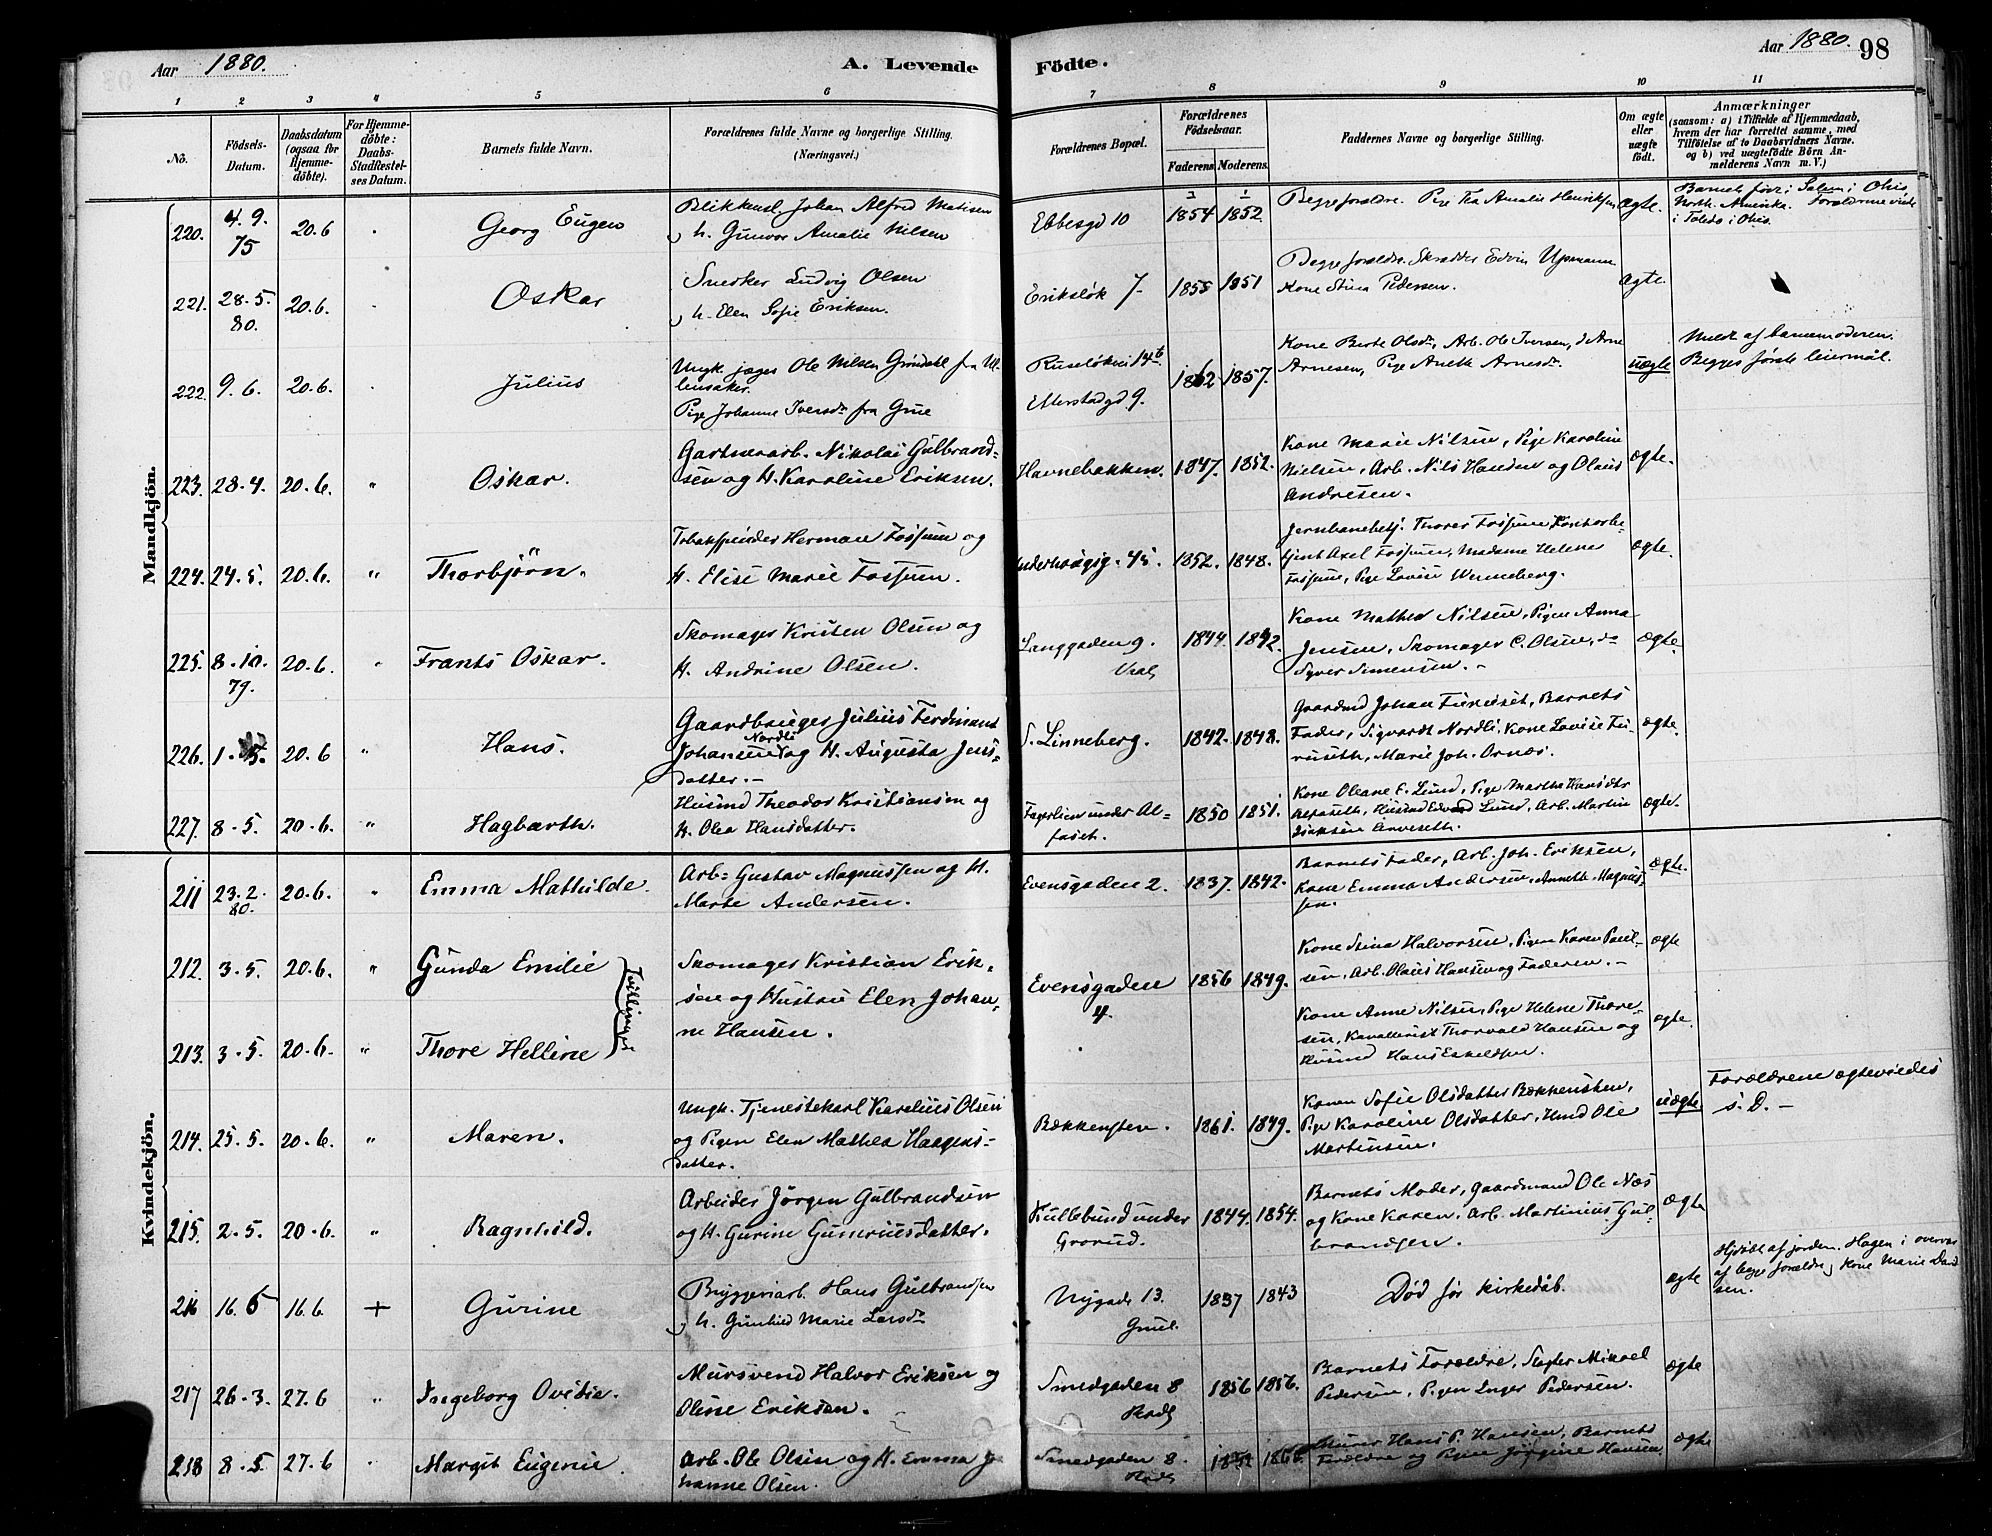 Aar 1880. A. Levende
Fødte. Aar 1880. 98
1 2 3 4 5 6 7 8 9 10 11
No. Fødsels-Datum. Daabsdatum (ogsaa for Hjemmedöbte). For Hjemmedöbte: Daabs-Stadfæstelses Datum. Barnets fulde Navn. Forældrenes fulde Navne og borgerlige Stilling. (Næringsvei.) Forældrenes Bopæl. Forældrenes Födselsaar. Faderens. Moderens. Faddernes Navne og borgerlige Stilling. Om ægte eller uægte födt. Anmærkninger (saasom: a) i Tilfælde af Hjemmedaab, hvem der har forrettet samme, med Tilföielse af to Daabsvidners Navne, og b) ved uægtefödte Börn Anmelderens Navn m. V.)
Mandkjön.
220. 4.9. 75 20.6 Georg Eugen
Blikkensl. Johan Alfred Matisen
h. Gunvor Amalie Nilsen
Ebbesgd 10 1854 1852.
Begge forældre. Pige Amalie Henriksen
ægte.
Barnet født i Salem i Ohio,
North Amerika. Forældrene viede
i Toledo i Ohio.
221. 28.5. 80. 20.6. Oskar
Snedker Ludvig Olsen
h. Elen Sofie Eriksen.
Eriksløk 7. 1855 1851
Begge forældre. Skrædder Edvin
Kone Stina Pedersen.
ægte.
222. 9.6. 20.6. Julius
Ungk. jæger Ole Nilsen Gröndahl fra Ul
lensaker.
Pige Johanne Iversdr fra Grue
Ruseløkvei 14b
Etterstadgd 9.
1862 1857.
Kone Berte Olsdr, Arb. Ole Iversen, do Arne
Arnesen, Pige Anette Arnesdr.
uægte
Meldt af barnemoderen.
Begges første leiermål.
223. 28.4. 20.6. " Oskar.
Gartnerarb. Nikolai Gulbrand=
sen og H. Karoline Eriksen.
Havnebakken. 1847. 1852.
Kone Marie Nilsen, Pige Karoline
Nielsen, Arb. Nils Hansen og Olaus
Andresen.
ægte.
224. 24.5. 20.6. " Thorbjörn.
Tobakspinder Herman Fossum og
H. Elise Marie Fossum.
45. 1852. 1848.
Jernbanebetj. Thorer Fossum Kontorbe-
tjent Axel Fossum, Madame Helene
Fossum, Pige Lovise Wenneberg.
ægte.
225. 8.10. 79. 20.6. " Frants Oskar.
Skomager Kristen Olsen og
H. Andrine Olsen.
Langgaden 9.
Vaal
1844. 1842.
Kone Mathea Nilsen, Pigen Anna
Jensen, Skomager C. Olsen, do
Syver Simensen.
ægte.
226. 1.5. 20.6 " Hans.
Gaardbruger Julius Ferdinant
Nordli
Johansen og H. Augusta Jens=
datter.
S. Linneberg. 1842. 1848.
Gaardmd Johan Furuset, Barnets
Fader, Sigvardt Nordli, Kone Lovise Fu-
ruseth, Marie Joh. Ornæs.
ægte.
227. 8.5. 20.6. " Hagbarth.
Husmd Theodor Kristiansen og
H. Olea Hansdatter.
Fagerlien under Al=
faset.
1850 1851.
Kone Oleane E. Lund, Pige Martha Hansdtr
Husmd Edvard Lund, Arb. Martin
ægte.
Kvindekjön.
211 23.2. 80. 20.6. " Emma Mathilde.
Arb= Gustav Magnussen og H.
Marte Andersen.
Evensgaden 2. 1837. 1842.
Barnets Fader, Arb. Joh. Eriksen,
Kone Emma Andersen, Annette Magnus-
sen.
ægte.
212. 3.5. 20.6. " Gunda Emilie
Tvillinger
Skomager Kristian Erik=
sen og Hustru Elen Johan=
ne Hansen.
Evensgaden
4.
1856 1849.
Kone Stina Halvorsen, Pigen Karen Paul-
sen, Arb. Olaus Hansen og Faderen.
ægte
213. 3.5. 20.6. " Thore Helline
Kone Anne Nilsen, Pige Helene Thore-
sen, Kavallerist Thorvald Hansen og
Husmd Hans Eskeldsen.
ægte.
214. 25.5. 20.6. " Maren.
Ungk. Tjenestekarl Karelius Olsen
og Pigen Elen Mathea Haagens=
datter.
Bækkensten. 1861. 1849.
Konen Sofie Olsdatter Bækkensten,
Pige Karoline Olsdatter, Husmd Ole
Martinsen.
uægte
Forældrene ægteviedes
s. D.
215. 2.5. 20.6. " Ragnhild.
Arbeider Jörgen Gulbrandsen
og H. Gurine Gunerusdatter.
Kullebund under
Grorud.
1844. 1854.
Barnets Moder, gaardmand Ole Næs
og Kone Karen. Arb. Martinius Gul-
brandsen.
ægte
216 16.5 16.6 + Gurine
Bryggeriarb. Hans Gulbrandsen
h. Gunhild Marie Larsdr
Nygade 13. 1837 1843
Død før kirkedåb.
ægte
Hjdøbt af jordm. Hagen i overvær
af begge forældre, Kone Marie David
sen.
217 26.3. 27.6 " Ingeborg Ovidia.
Mursvend Halvor Eriksen og
Oline Eriksen.
Smedgaden 8 1856 1856.
Barnets Forældre, Slagter Mikael
Pedersen, Pigen Inger Pedersen.
ægte
218 8.5. 27.6 Margit Eugenie.
Arb. Ole Olsen og H. Emma Jo
hanne Olsen.
Smedgaden 8.
Murer Hans P. Hansen, Barnets
Forældre og Pigen Jörgine Hansen.
ægte